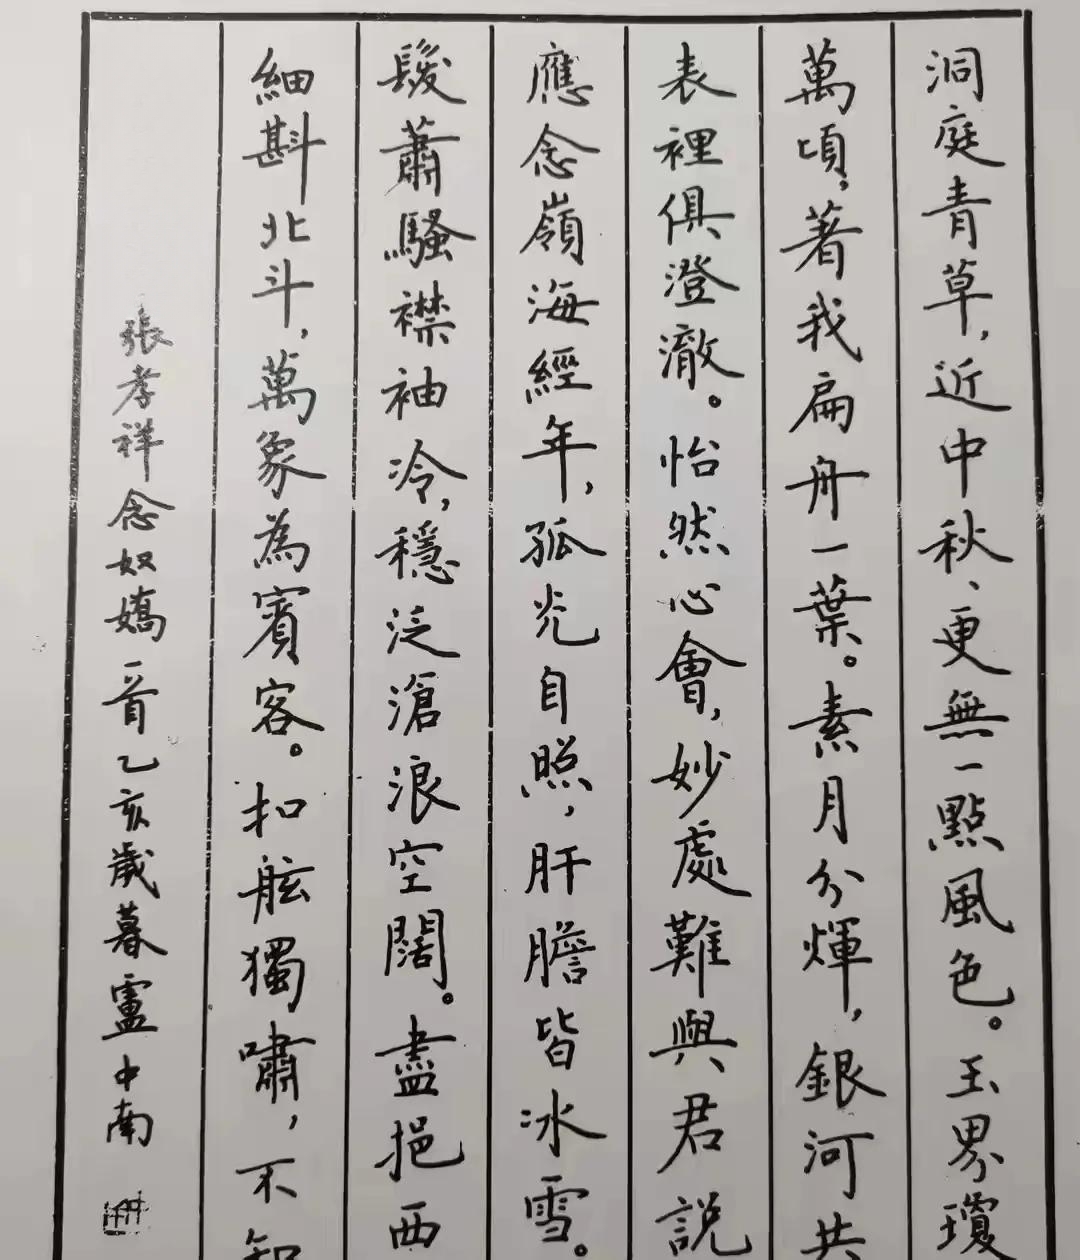 洞庭青草，近中秋、更無一點風色。玉界瓊
萬頃，著我扁舟一葉。素月分輝，銀河共
表裡俱澄澈。怡然心會，妙處難與君說
應念嶺海經年，孤光自照，肝膽皆冰雪。
髮蕭騷襟袖冷，穩泛滄浪空闊。盡挹西
細斟北斗，萬象為賓客。扣舷獨嘯，不知
張孝祥念奴嬌一首乙亥歲暮盧中南